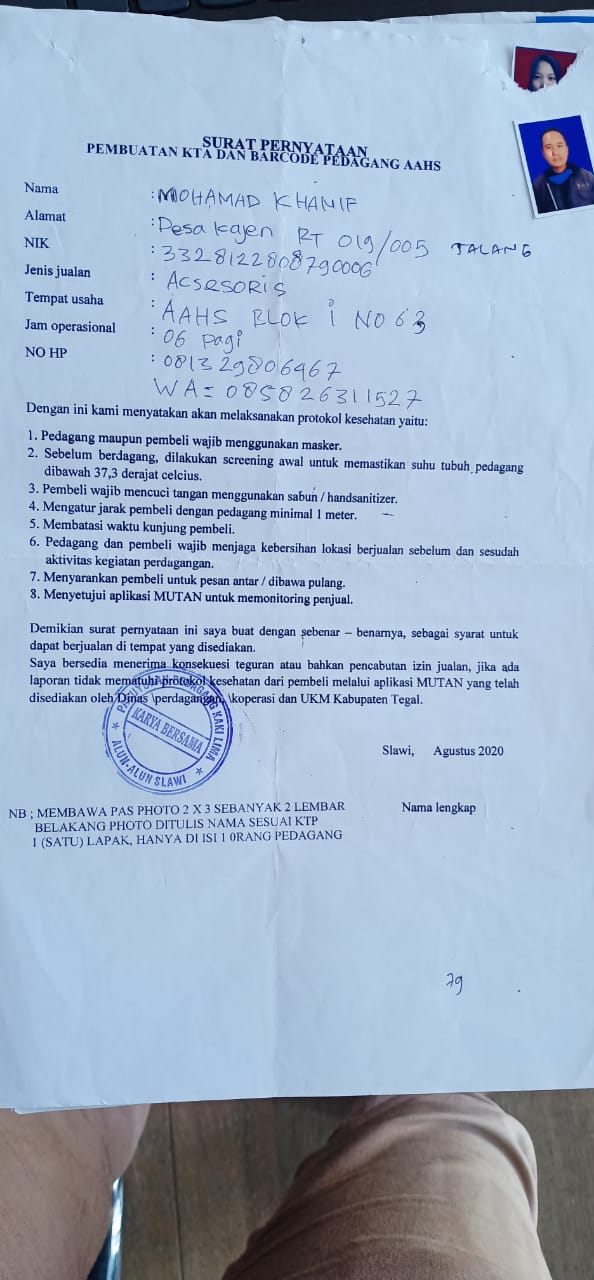 SURAT PERNYATAAN
PEMBUATAN KTA DAN BARCODE PEDAGANG AAHS
Nama : MOHAMAD KHANIF
Alamat : Desa Kajen RT 019/005 TALANG
NIK : 3328122808790006
Jenis jualan : Acsesoris
Tempat usaha : AAHS BLOK i NO 63
Jam operasional : 06 pagi
NO HP : 081329806467
WA = 085826311527
Dengan ini kami menyatakan akan melaksanakan protokol kesehatan yaitu:
1. Pedagang maupun pembeli wajib menggunakan masker.
2. Sebelum berdagang, dilakukan screening awal untuk memastikan suhu tubuh pedagang
dibawah 37,3 derajat celcius.
3. Pembeli wajib mencuci tangan menggunakan sabun / handsanitizer.
4. Mengatur jarak pembeli dengan pedagang minimal 1 meter.
5. Membatasi waktu kunjung pembeli.
6. Pedagang dan pembeli wajib menjaga kebersihan lokasi berjualan sebelum dan sesudah
aktivitas kegiatan perdagangan.
7. Menyarankan pembeli untuk pesan antar / dibawa pulang.
8. Menyetujui aplikasi MUTAN untuk memonitoring penjual.
Demikian surat pernyataan ini saya buat dengan sebenar – benarnya, sebagai syarat untuk
dapat berjualan di tempat yang disediakan.
Saya bersedia menerima konsekuesi teguran atau bahkan pencabutan izin jualan, jika ada
laporan tidak mematuhi protokol kesehatan dari pembeli melalui aplikasi MUTAN yang telah
disediakan oleh Dinas \perdagangan, \koperasi dan UKM Kabupaten Tegal.
PAGUYUBAN PEDAGANG KAKI LIMA
KARYA BERSAMA
ALUN-ALUN SLAWI
Slawi, Agustus 2020
Nama lengkap
NB ; MEMBAWA PAS PHOTO 2 X 3 SEBANYAK 2 LEMBAR
BELAKANG PHOTO DITULIS NAMA SESUAI KTP
1 (SATU) LAPAK, HANYA DI ISI 1 0RANG PEDAGANG
79